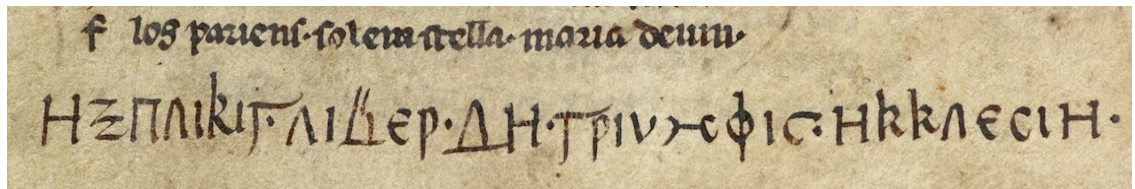 f los pariens· solem stella· maria deum·
ΗΞΠΛΙΚΙΤ· ΛΙΒΕΡ· ΔΗ· ΤΡΙΥΜΦΙϹ· ΗΚΚΛΕϹΙΗ·